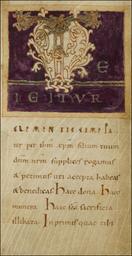 TE
IGITUR
CLEMENTISSIME PA
ter per ihm xpm filium tuum
dnm nrm supplices rogamus
& petimus uti accepta habeas
& benedicas Haec dona Haec
munera Haec sca sacrificia
illibata Inprimis quae tibi